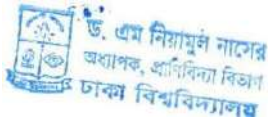 ড. এম নিয়ামুল নাসের
অধ্যাপক, প্রাণিবিদ্যা বিভাগ
ঢাকা বিশ্ববিদ্যালয়